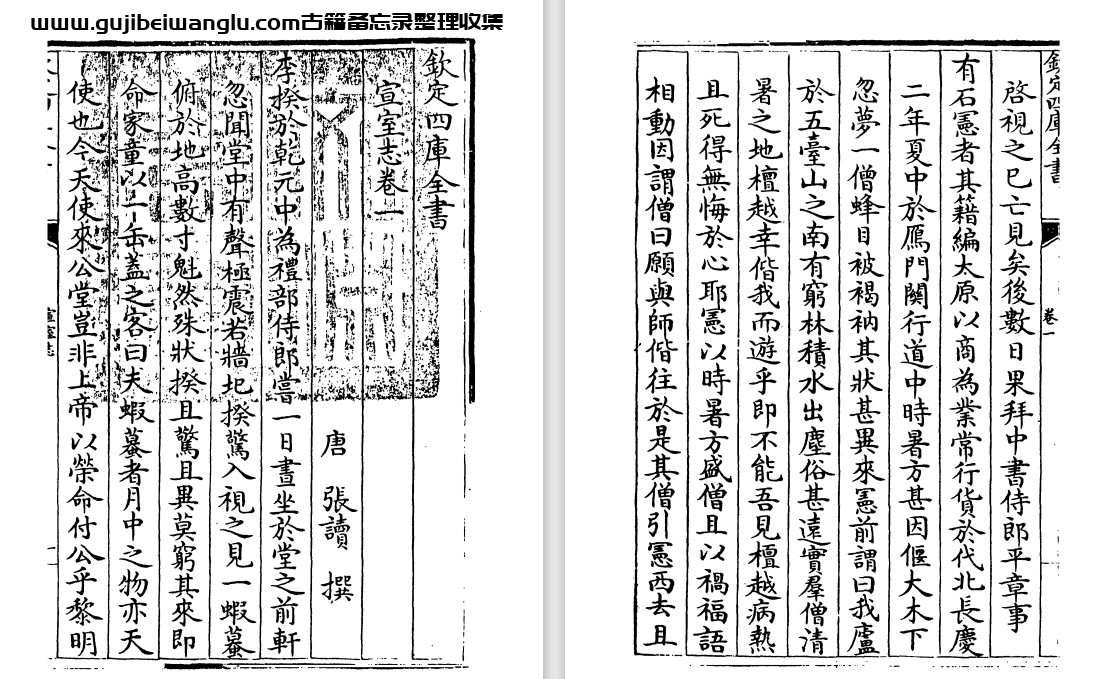 www.gujibeiwanglu.com古籍备忘录整理收集
欽定四庫全書
宣室志卷一
唐 張讀 撰
李揆於乾元中為禮部侍郎嘗一日晝坐於堂之前軒
忽聞堂中有聲極震若牆圯揆驚入視之見一蝦蟇
俯於地高數寸魁然殊狀揆且驚且異莫窮其來即
命家童以一缶盖之客曰夫蝦蟇者月中之物亦天
使也今天使來公堂豈非上帝以榮命付公乎黎明
啓視之已亡見矣後數日果拜中書侍郎平章事
有石憲者其籍編太原以商為業常行貨於代北長慶
二年夏中於鴈門關行道中時暑方甚因偃大木下
忽夢一僧蜂目被褐衲其狀甚異來憲前謂曰我廬
於五臺山之南有窮林積水出塵俗甚遠實羣僧清
暑之地檀越幸偕我而遊乎即不能吾見檀越病熱
且死得無悔於心耶憲以時暑方盛僧且以禍福語
相動因謂僧曰願與師偕往於是其僧引憲西去且
欽定四庫全書
卷一